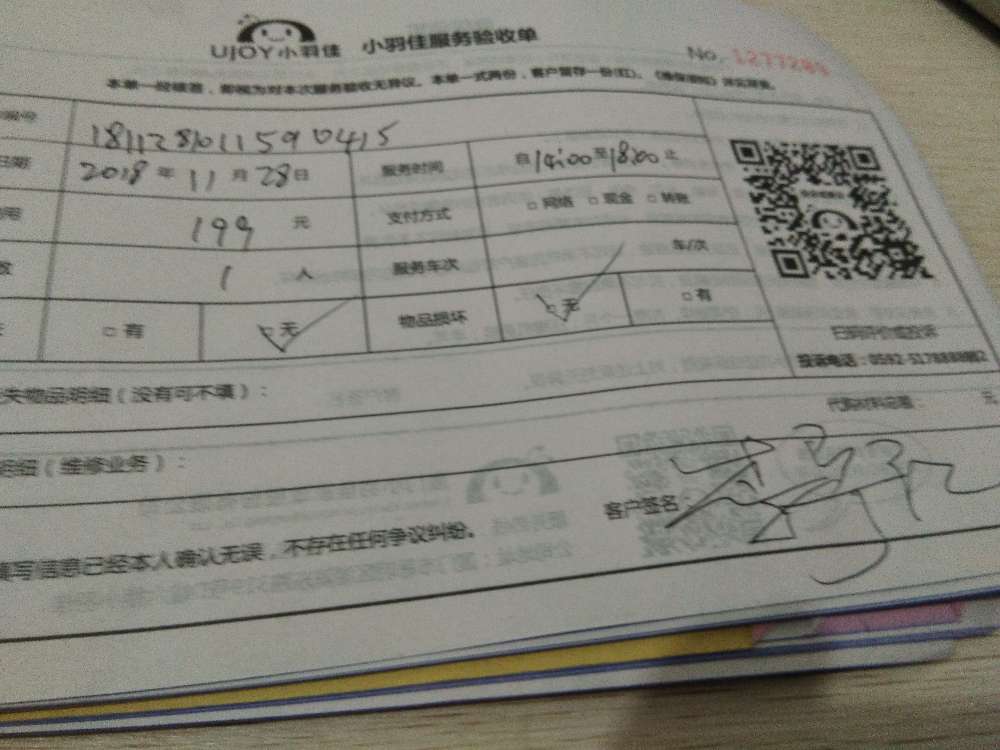 UJOY小羽佳 小羽佳服务验收单
No. 1277285
本单一经核签，即视为对本次服务验收无异议。本单一式两份，客户留存一份(红)。
编号 181128101159 0415
日期 2018年11月28日 服务时间 自14:00至18:00止
199 元 支付方式 □网络 □现金 □转账
数 1 人 服务车次 车/次
□有 □无 物品损坏 □无 □有
扫码评价或投诉
投诉电话：0592-5178888转2
失物品明细（没有可不填）：
代购材料总额： 元
明细（维修业务）：
客户签名：
填写信息已经本人确认无误，不存在任何争议纠纷。